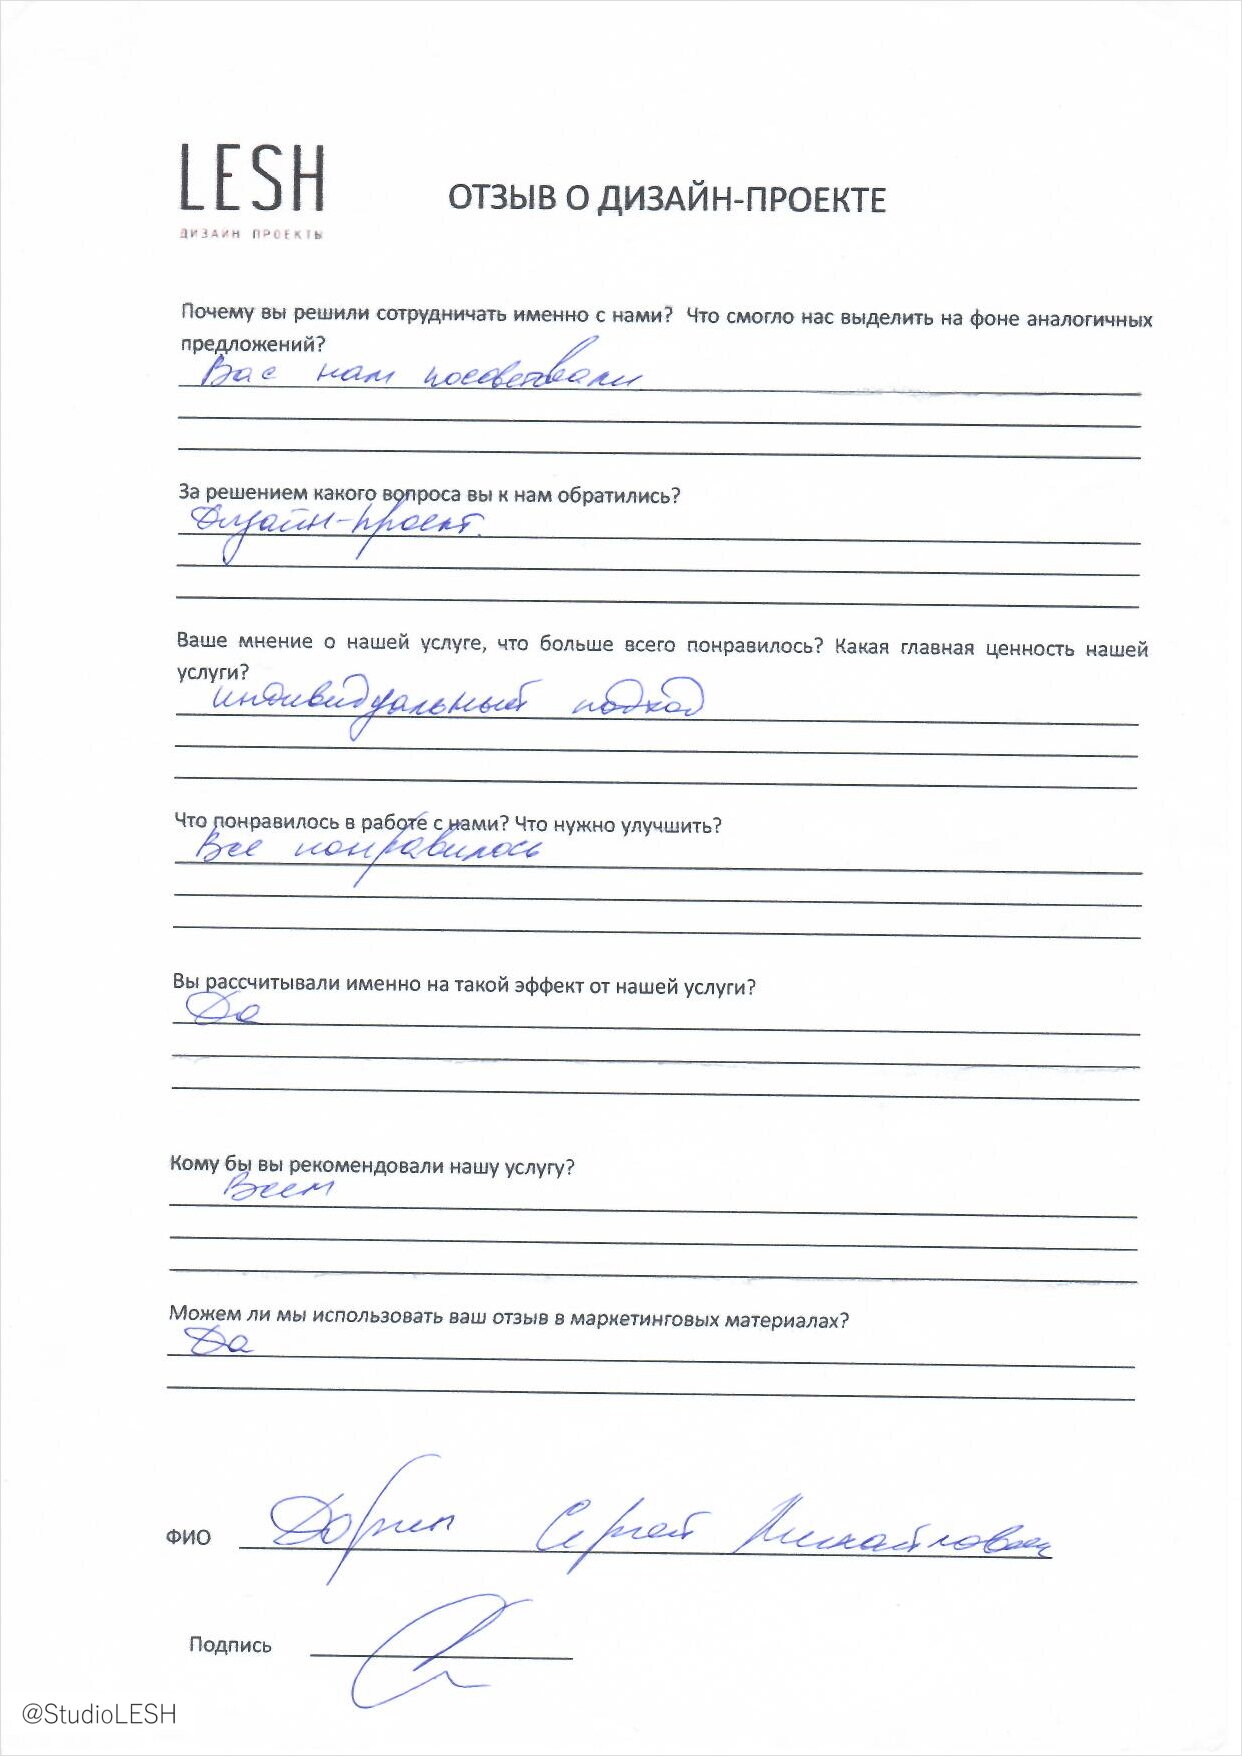 LESH
ДИЗАЙН ПРОЕКТЫ
ОТЗЫВ О ДИЗАЙН-ПРОЕКТЕ
Почему вы решили сотрудничать именно с нами? Что смогло нас выделить на фоне аналогичных
предложений?
Вас нам посоветовали
За решением какого вопроса вы к нам обратились?
Дизайн-проект.
Ваше мнение о нашей услуге, что больше всего понравилось? Какая главная ценность нашей
услуги?
индивидуальный подход
Что понравилось в работе с нами? Что нужно улучшить?
Все понравилось
Вы рассчитывали именно на такой эффект от нашей услуги?
Да
Кому бы вы рекомендовали нашу услугу?
Всем
Можем ли мы использовать ваш отзыв в маркетинговых материалах?
Да
ФИО Сергей Михайлович
Подпись
@StudioLESH